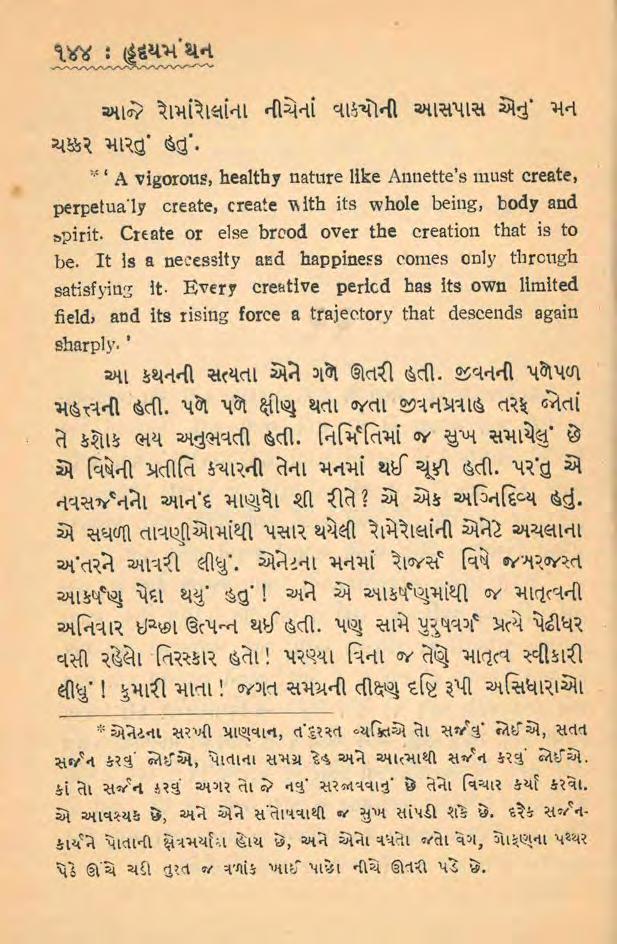 ૧૪૪ : હૃદયમંથન
આજે રોમાંરોલાંના નીચેનાં વાક્યોની આસપાસ એનું મન
ચક્કર મારતું હતું.
*‘ A vigorous, healthy nature like Annette's must create,
perpetua'ly create, create with its whole being, body and
spirit. Create or else brood over the creation that is to
be. It is a necessity and happiness comes only through
satisfying it. Every creative period has its own limited
field, and its rising force a trajectory that descends again
sharply. ’
આ કથનની સત્યતા એને ગળે ઊતરી હતી. જીવનની પળેપળ
મહત્ત્વની હતી. પળે પળે ક્ષીણ થતા જતા જીવનપ્રવાહ તરફ જોતાં
તે કશોક ભય અનુભવતી હતી. નિર્મિતિમાં જ સુખ સમાયેલું છે
એ વિષેની પ્રતીતિ કયારની તેના મનમાં થઈ ચૂકી હતી. પરંતુ એ
નવસર્જનનો આનંદ માણવો શી રીતે? એ એક અગ્નિદિવ્ય હતું.
એ સઘળી તાવણીઓમાંથી પસાર થયેલી રોમેરોલાંની એનેટે અચલાના
અંતરને આવરી લીધું. એનેટના મનમાં રોજર્સ વિષે જબરજસ્ત
આકર્ષણ પેદા થયું હતું ! અને એ આકર્ષણમાંથી જ માતૃત્વની
અનિવાર ઇચ્છા ઉત્પન્ન થઈ હતી. પણ સામે પુરુષવર્ગ પ્રત્યે પેઢીધર
વસી રહેલો તિરસ્કાર હતો! પરણ્યા વિના જ તેણે માતૃત્વ સ્વીકારી
લીધું ! કુમારી માતા ! જગત સમગ્રની તીક્ષ્ણ દૃષ્ટિ રૂપી અસિધારાઓ
* એનેટના સરખી પ્રાણવાન, તંદુરસ્ત વ્યક્તિએ તો સર્જવું જોઈએ, સતત
સર્જન કરવું જોઈએ, પોતાના સમગ્ર દેહ અને આત્માથી સર્જન કરવું જોઈએ.
કાં તો સર્જન કરવું અગર તો જે નવું સરજાવવાનું છે તેનો વિચાર કર્યા કરવો.
એ આવશ્યક છે, અને એને સંતોષવાથી જ સુખ સાંપડી શકે છે. દરેક સર્જન-
કાર્યને પોતાની ક્ષેત્રમર્યાદા હોય છે, અને એનો વધતો જતો વેગ, ગોફણના પથ્થર
પેઠે ઊંચે ચડી તુરત જ વળાંક ખાઈ પાછો નીચે ઊતરી પડે છે.